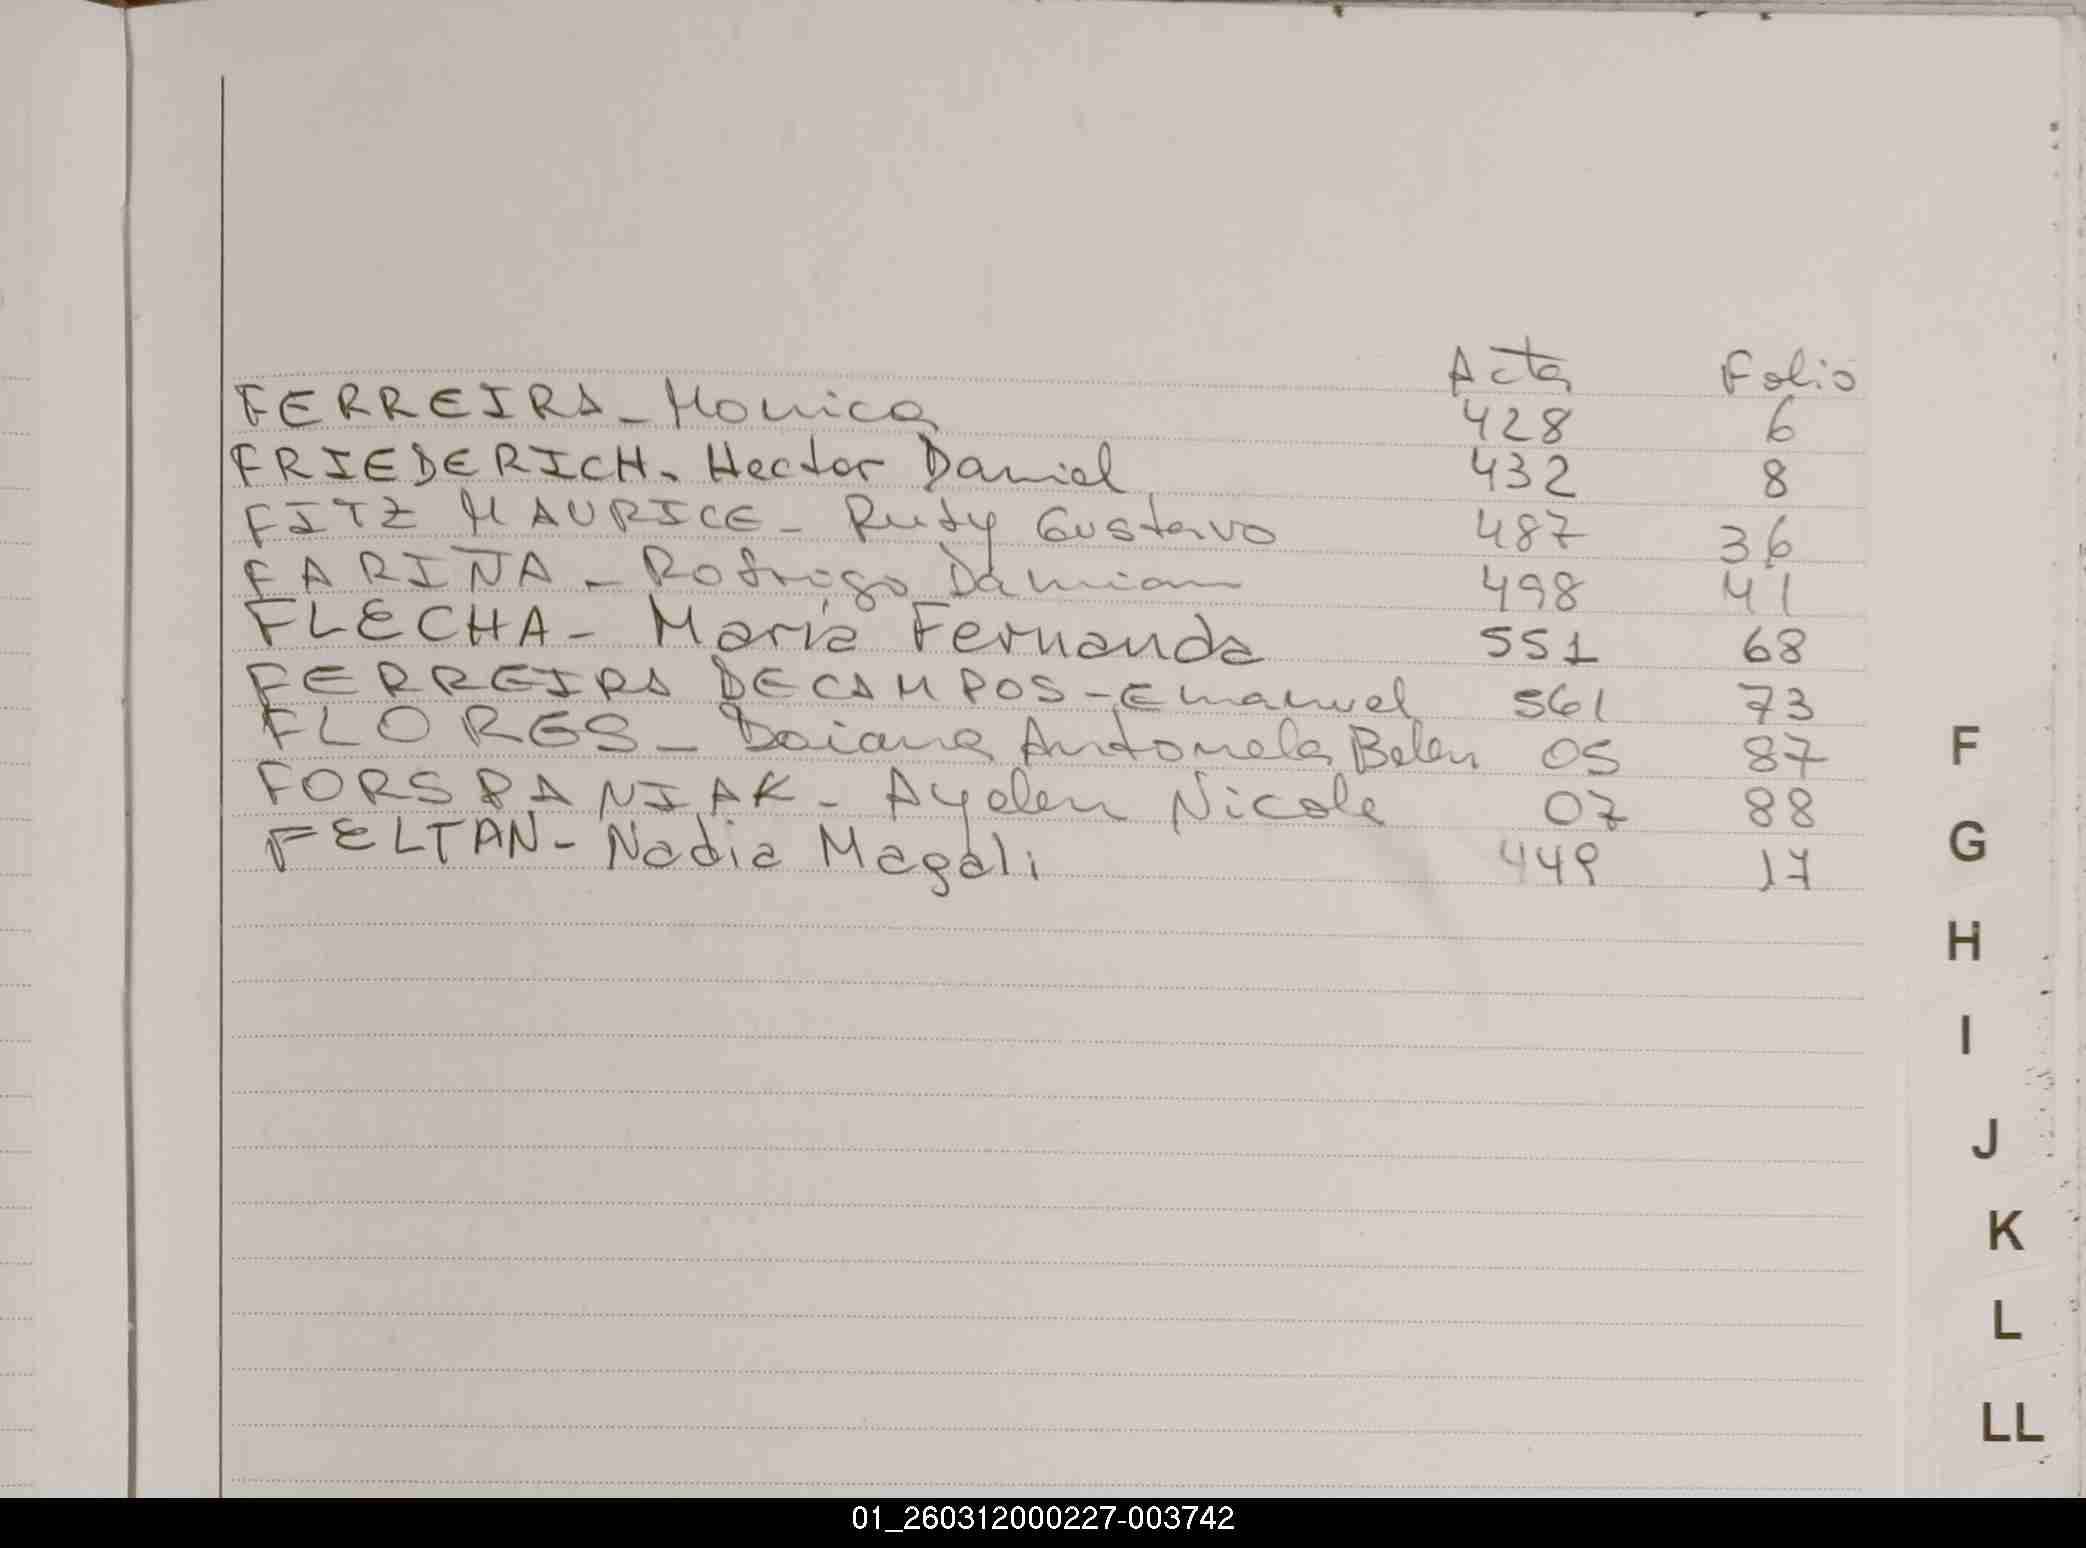 Acta Folio
FERREIRA - Monica 428 6
FRIEDERICH. Hector Daniel 432 8
FITZ MAURICE - Rudy Gustavo 487 36
FARIÑA - Rodrigo Damian 498 41
FLECHA - Maria Fernanda 551 68
FERREIRA DECAMPOS - Emanuel 561 73
FLORES - Daiana Antonela Belen 05 87
FORSPANIAK - Ayelen Nicole 07 88
FELTAN - Nadia Magali 449 17
F
G
H
I
J
K
L
LL
01_260312000227-003742